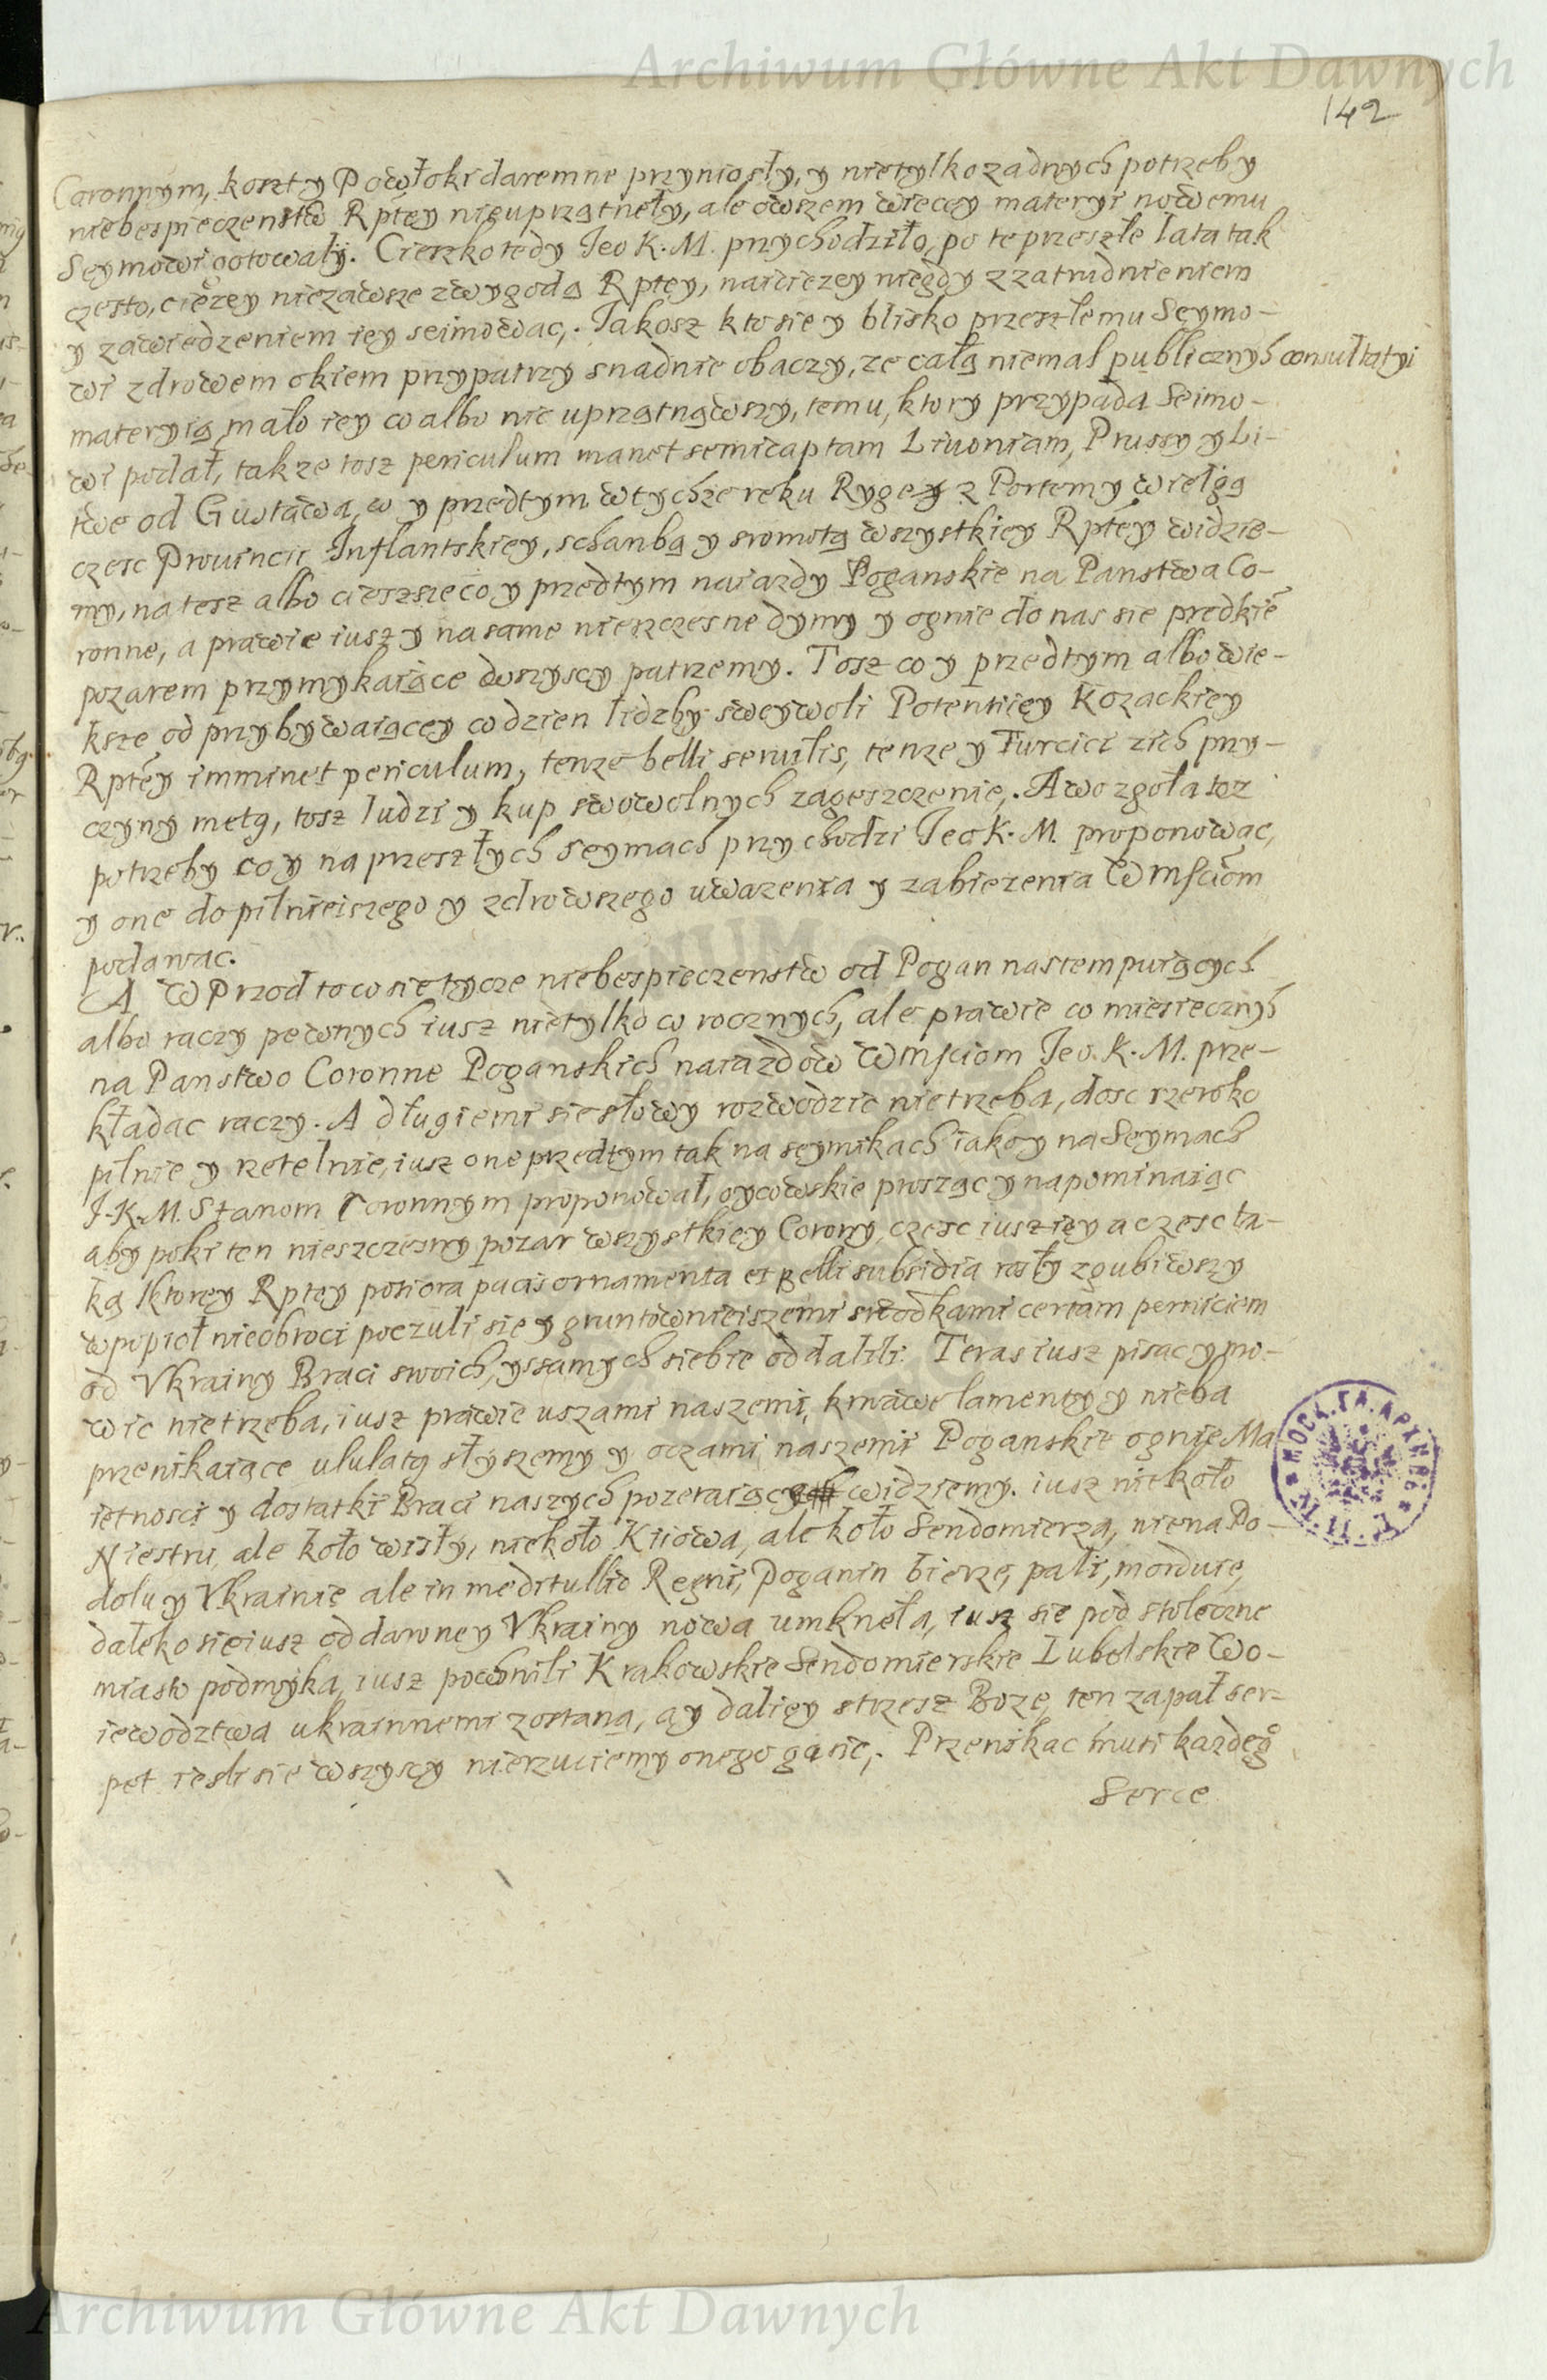 Archiwum Główne Akt Dawnych
142
Coronnym, koszty Powłoki daremne przyniosły, y nietylko zadnych potrzeby
niebespieczenstw Rptey nieuprzątnęły, ale owszem więcey materyi nowemu
Seymowi gotowały. Cieszko tedy Jeo K. M. przychodziło, po te przeszłe lata tak
często, cięzey niezawsze zwygodą Rptey, naicięzey niegdy zzatrudnieniem
y zawiedzeniem iey seimowac,. Jakosz kto sie y blisko przeszłemu Seymo-
wi zdrowem okiem przypatrzy snadnie obaczy, ze całą niemal publicznych consultatyi
materyią mało iey co albo nic uprzątnąwszy, temu, ktory przypada Seimo-
wi podał, takze tosz periculum manet semicaptam Liuoniam, Prussy y Li-
twe od Gustawa, co y przedtym wtychze reku Ryge z Portem y wielgą
czesc Prouincii Inflantskiey, schanbą y sromotą wszystkiey Rptey widzie-
my, na tesz albo cieszsze co y przedtym naiazdy Poganskie na Panstwa Co-
ronne, a prawie iusz y na same nieszczesne dymy y ognie do nas sie prędkie
pozarem przymykaiące wszyscy patrzemy. Tosz co y przedtym albo wie-
ksze od przybywaiącey co dzien lidzby swey woli Potentiiey Kozackiey
Rptey imminet periculum, tenze belli seruilis, tenze y Turcici zich przy-
czyny metą, tosz ludzi y kup swowolnych zageszczenie,. A wo zgoła toz
potrzeby co y na przeszłych seymach przychodzi Jeo K. M. proponowac,
y one do pilnieiszego y zdrowszego uwazenia y zabiezenia WMsciom
podawac.
A wprzod to co sie tycze niebespieczenstw od Pogan nastempuiących
albo raczy pewnych iusz nietylko co rocznych, ale prawie co miesiecznych
na Panstwo Coronne Poganskich naiazdow WMsciom Jeo. K. M. prze-
kładac raczy. A długiemi sie słowy rozwodzic nietrzeba, dosc szeroko
pilnie y rzetelnie, iusz one przedtym tak na seymikach iako y na Seymach
J. K. M. Stanom Coronnym proponował, oycowskie prosząc y napominaiąc
aby poki ten nieszczesny pozar wszystkiey Corony czesc iusz iey a czesc ta-
ką ktorey Rptey potiora pacis ornamenta et Belli subsidia rosły zgubiwszy
wpopioł nieobroci poczuli się y gruntownieiszemi srzodkami certam perniciem
od Vkrainy Braci swoich, y ssamych siebie oddalili. Teras iusz pisac y mo-
wic nietrzeba, iusz prawie uszami naszemi, krwawe lamenty y nieba
przenikaiące ululatą słyszemy y oczami naszemi Poganskie ognie Ma-
ietnosci y dostatki Braci naszych pozeraiący widziemy. iusz niekoło
Niestru, ale koło wisły, niekoło Kiiowa, ale koło Sendomierza, niena Po-
dolu y Vkrainie ale in meditullio Regni, Poganin bierze, pali, morduie,
daleko sie iusz oddawney Vkrainy nowa umknęła, iusz się pod stołeczne
miasto podmyka, iusz pochwili Krakowskie Sendomierskie Lubelskie Wo-
iewodztwa ukrainnemi zostaną, a y daliey strzesz Boze, ten zapał ser-
pet iesli sie wszyscy nierzuciemy onego gasic,. Przenikac musi kazdego
Serce
Archiwum Główne Akt Dawnych